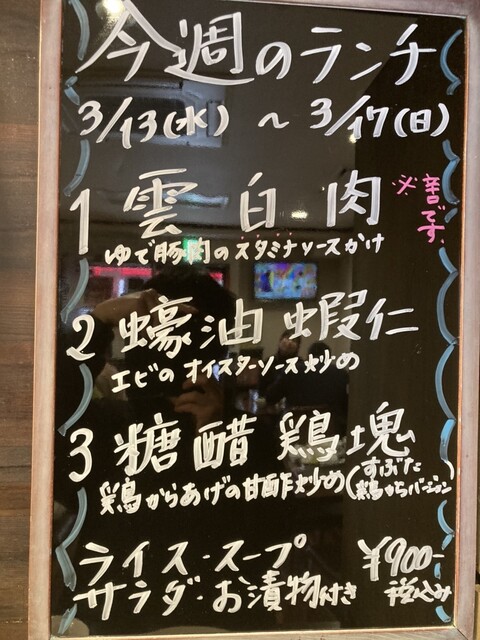 今週のランチ
3/13(水) ~ 3/17(日)
1 雲白肉 ※辛口です
ゆで豚肉のスタミナソースかけ
2 蠔油蝦仁
エビのオイスターソース炒め
3 糖醋鶏塊
鶏からあげの甘酢炒め(すぶた鶏からバージョン)
ライス・スープ
サラダ・お漬物付き
¥900-
税込み